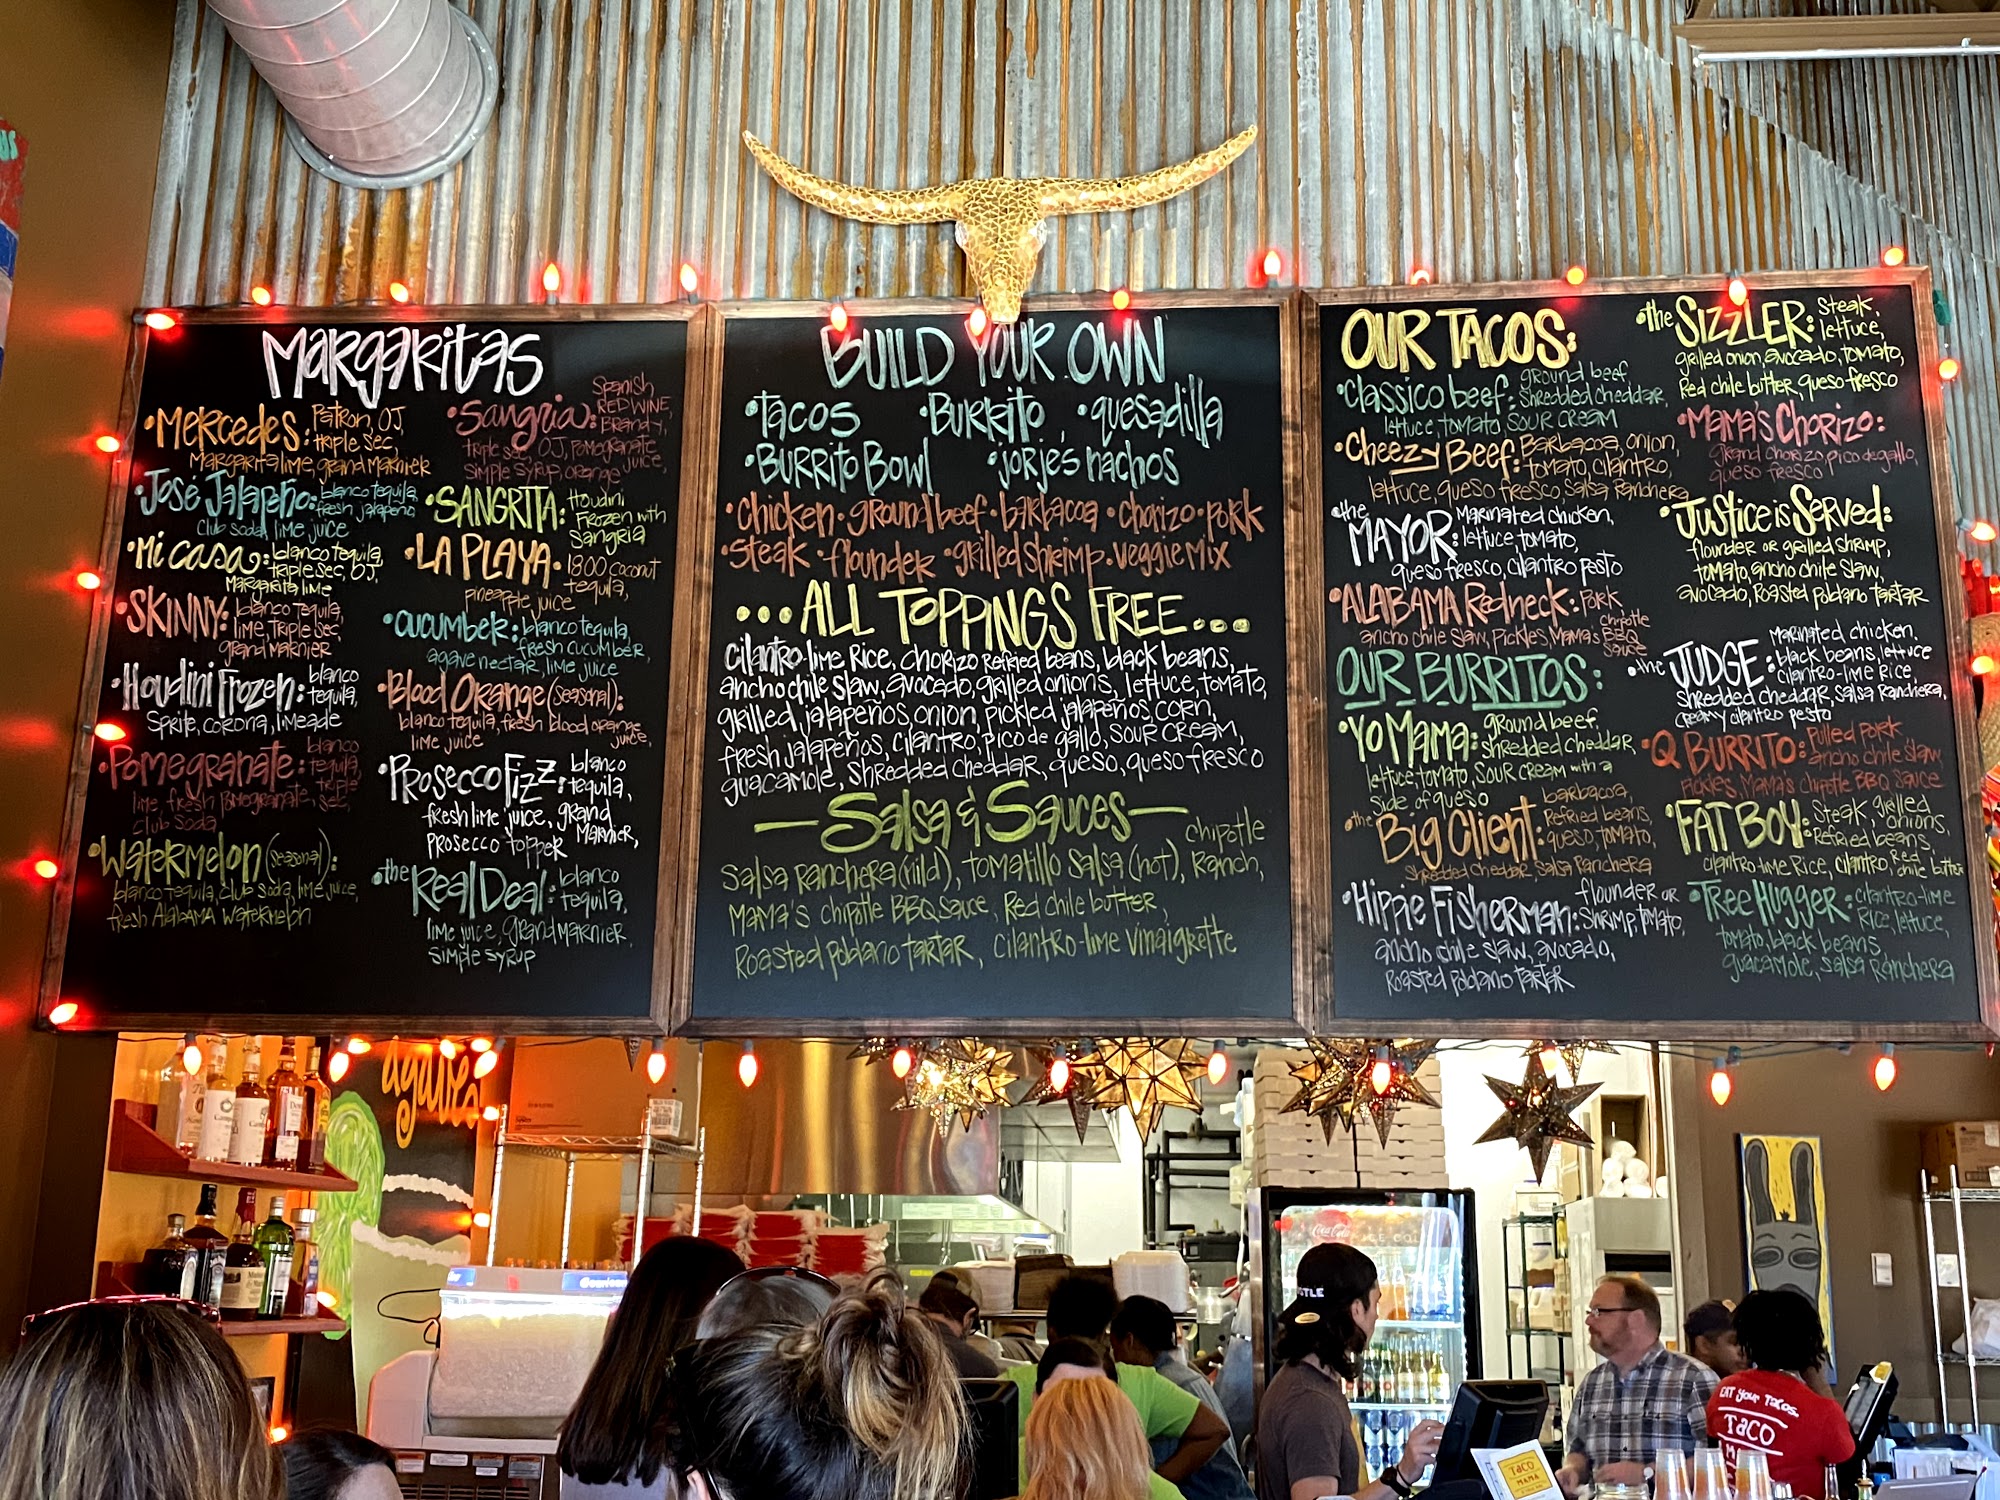 Margaritas
•Mercedes: Patron, OJ,
triple sec,
Margarita lime, grand Marnier
•José Jalapeño: blanco tequila,
fresh jalapeño
club soda, lime juice
•Mi casa: blanco tequila,
triple sec, OJ,
Margarita lime
•SKINNY: blanco tequila,
lime, triple sec,
grand Marnier
•Houdini Frozen: blanco
tequila,
Sprite, corona, limeade
•Pomegranate: blanco
tequila,
triple
lime, fresh pomegranate, sec,
club soda
•Watermelon (seasonal):
blanco tequila, club soda, lime juice,
fresh Alabama watermelon
•Sangria: Spanish
RED WINE,
Brandy,
triple sec, OJ, pomegranate
juice,
simple syrup, orange
•SANGRITA: Houdini
Frozen with
Sangria
•LA PLAYA• 1800 coconut
tequila,
pineapple juice
•cucumber: blanco tequila,
fresh cucumber,
agave nectar, lime juice
•Blood Orange (seasonal):
blanco tequila, fresh blood orange
juice,
lime juice
•Prosecco Fizz: blanco
tequila,
fresh lime juice, grand
Marnier,
prosecco topper
•the Real Deal: blanco
tequila,
lime juice, grand marnier,
simple syrup
BUILD YOUR OWN
•Tacos •Burrito •quesadilla
•Burrito Bowl •jorje's nachos
•chicken •ground beef •barbacoa •chorizo •pork
•steak •flounder •grilled shrimp •veggie mix
...ALL TOPPINGS FREE...
cilantro-lime rice, chorizo refried beans, black beans,
ancho chile slaw, avocado, grilled onions, lettuce, tomato,
grilled jalapeños, onion, pickled jalapeños, corn,
fresh jalapeños, cilantro, pico de gallo, sour cream,
guacamole, shredded cheddar, queso, queso fresco
—Salsa & Sauces—
chipotle
Salsa Ranchera (mild), tomatillo salsa (hot), Ranch,
Mama's chipotle BBQ sauce, Red chile butter,
Roasted poblano tartar, cilantro-lime vinaigrette
OUR TACOS:
•Classico beef: ground beef
shredded cheddar,
lettuce, tomato, sour cream
•Cheezy Beef: Barbacoa, onion,
tomato, cilantro,
lettuce, queso fresco, salsa Ranchera
•the MAYOR: Marinated chicken,
lettuce, tomato,
queso fresco, cilantro pesto
•ALABAMA Redneck: pork
ancho chile slaw, pickles, Mama's chipotle
BBQ
sauce
•the SIZZLER: Steak,
lettuce,
grilled onion, avocado, tomato,
Red chile butter, queso fresco
•Mama's Chorizo:
grand chorizo, pico de gallo,
queso fresco
•Justice is Served:
flounder or grilled shrimp,
tomato, ancho chile slaw,
avocado, Roasted poblano tartar
OUR BURRITOS:
•Yo Mama: ground beef,
shredded cheddar,
lettuce, tomato, sour cream with a
side of queso
•the Big Client: barbacoa,
Refried beans,
queso, tomato,
shredded cheddar, salsa Ranchera
•Hippie Fisherman: flounder or
shrimp, tomato,
ancho chile slaw, avocado,
Roasted poblano tartar
•the JUDGE: Marinated chicken,
black beans, lettuce
cilantro-lime Rice,
shredded cheddar, salsa Ranchera,
creamy cilantro pesto
•Q BURRITO: Pulled pork
ancho chile slaw,
pickles, Mama's chipotle BBQ sauce
•FAT BOY: Steak, grilled
onions,
Refried beans,
cilantro-lime Rice, cilantro, Red
chile butter
•Tree Hugger: cilantro-lime
Rice, lettuce,
tomato, black beans
guacamole, salsa Ranchera
agave
Coca-Cola
EAT your Tacos.
TACO
TACO
MAMA